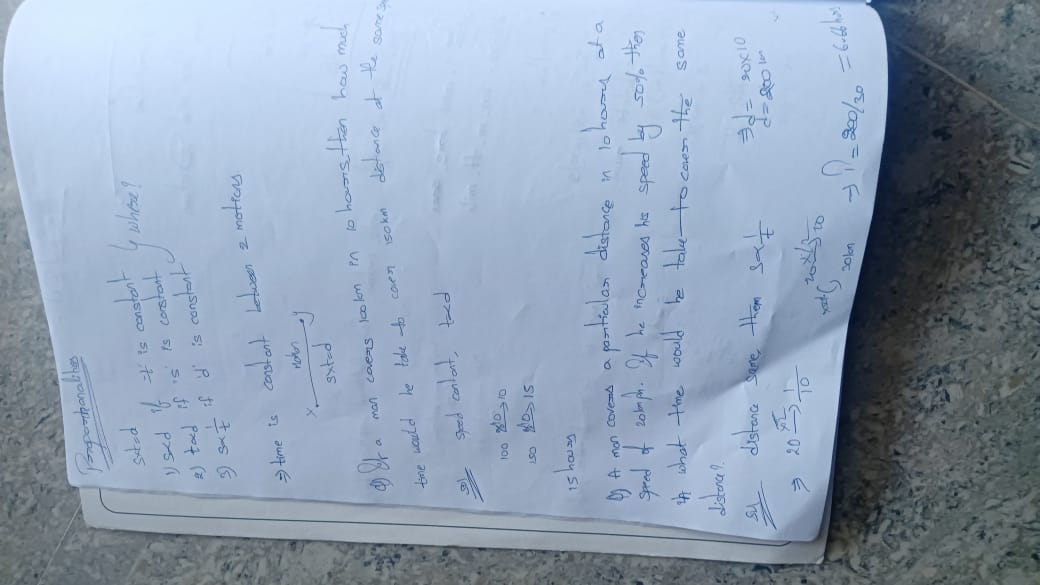 Proportionalities
Sxt=d
1) s∝d if 't' is constant
2) t∝d if 's' is constant } where?
3) s∝1/t if 'd' is constant
⇒ time is constant between 2 meteors
x y
sxt=d
Q) If a man covers 100km in 10 hours, then how much
time would he take to cover 150km distance at the same
Sol) speed constant, t∝d
100 →10
150 →15
15 hours
Q) A man covers a particular distance in 10 hours at a
speed of 20kmph. If he increases his speed by 50% then
what time would he take to cover the same
distance?
Sol distance same, then s∝1/t ⇒ d = 20x10
d = 200km
⇒ 20 → 1/10
30km ⇒ = 200/30 = 6.66hrs